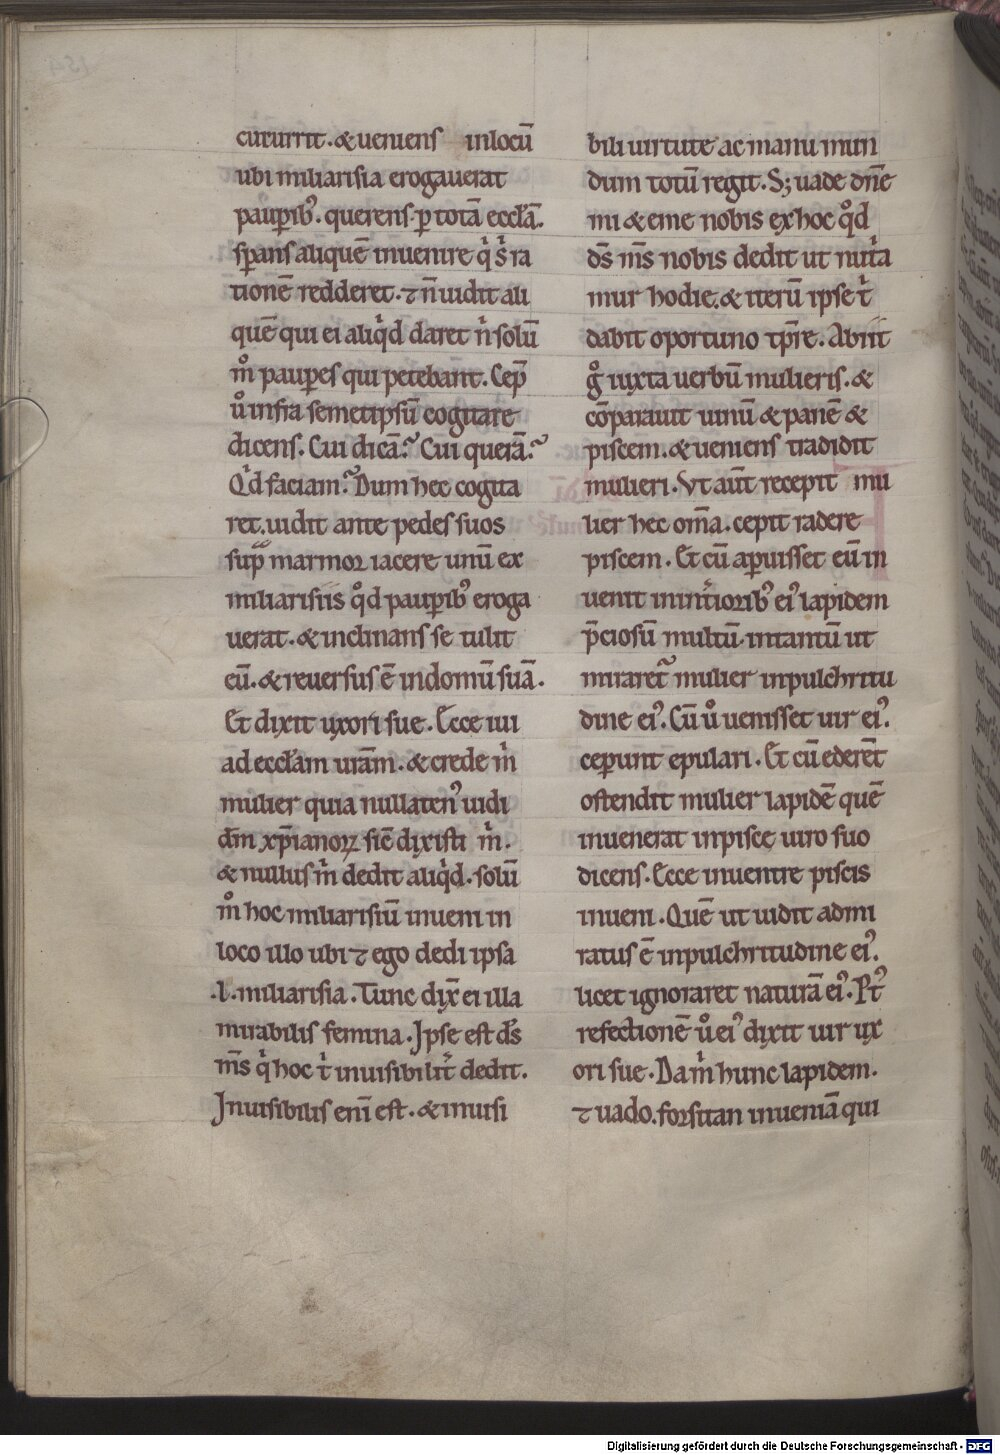 cucurrit. & ueniens in locū
ubi miliarisia erogauerat
paup̱ib᾽. querens p̱ totā eccl̄am.
sp̱ans aliquē inuenire qͥ sͥ ra
tionē redderet. ⁊ n̄ uidit ali
quē qui ei aliqͥd daret nͥ solū
mͦ paup̱es qui petebant. Cep̄
uͦ infra semetipsū cogitare
dicens. Cui dicā? Cui querā?
Qͥd faciam? Dum hec cogita
ret. uidit ante pedes suos
sup̱ marmor iacere unū ex
miliarisiis qͦd paup̱ib᾽ eroga
uerat. & inclinans se tulit
eū. & reuersus ē in domū suā.
Et dixit uxori sue. Ecce iui
ad eccl̄am ur̄am. & crede mͥ
mulier quia nullaten᾽ uidi
dm̄ xp̄ianoꝝ sic̄ dixisti mͥ.
& nullus mͥ dedit aliqͥd. solū
mͦ hoc miliarisiū inueni in
loco illo ubi ⁊ ego dedi ipsa
.l. miliarisia. Tunc dix̄ ei illa
mirabilis femina. Ipse est ds̄
ms̄ qͥ hoc tͥ inuisibilit̾ dedit.
Inuisibilis eni̅ est. & inuisi
bili uirtute ac manu mun
dum totū regit. S; uade dn̄e
mi & eme nobis ex hoc qͦd
ds̄ ms̄ nobis dedit ut nutͥa
mur hodie. & iterū ipse tͥ
dabit oportuno tp̄re. Abiit
gͦ iuxta uerbū mulieris. &
cōparauit uinū & panē &
piscem. & ueniens tradidit
mulieri. Vt aūt recepit mu
lier hec om̄a. cepit radere
piscem. Et cū ap̱uisset eū in
uenit in int̾iorib᾽ ei᾽ lapidem
p̄ciosū multū. intantū ut
miraret᷑ mulier in pulchritu
dine ei᾽. Cū uͦ uenisset uir ei᾽.
cep̱unt epulari. Et cū ederēt
ostendit mulier lapidē quē
inuenerat in pisce uiro suo
dicens. Ecce in uentre piscis
inueni. Quē ut uidit admi
ratus ē in pulchritudine ei᾽.
licet ignoraret naturā ei᾽. P᾽t
refectionē uͦ ei᾽ dixit uir ux
ori sue. Da mͥ hunc lapidem.
⁊ uado. forsitan inueniā qui
Digitalisierung gefördert durch die Deutsche Forschungsgemeinschaft - DFG